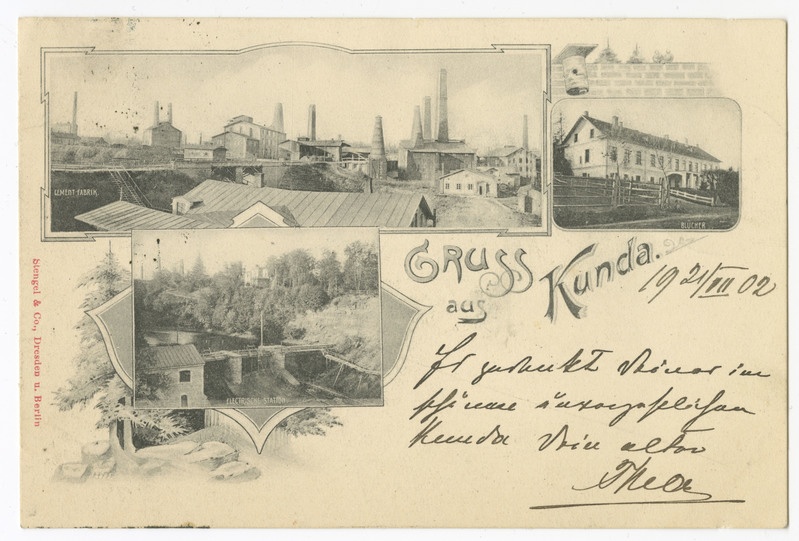 CEMENT-FABRIK
BLÜCHER
Gruss
aus
Kunda.
ELECTRISCHE-STATION
Stengel & Co., Dresden u. Berlin
19 21/VII 02
Es gedenkt Deiner im
schönen
Kunda Dein alter